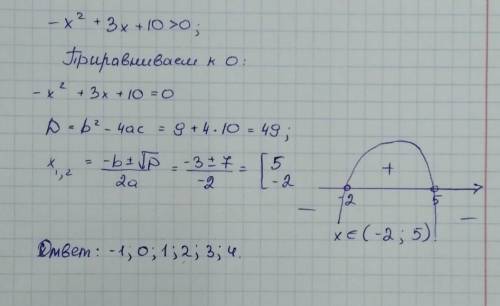 -x² + 3x + 10 > 0;
Приравниваем к 0:
-x² + 3x + 10 = 0
D = b² - 4ac = 9 + 4·10 = 49;
x₁,₂ = (-b ± √D)/(2a) = (-3 ± 7)/(-2) = [5 -2
+
-2 5
— —
x ∈ (-2; 5)
Ответ: -1; 0; 1; 2; 3; 4.